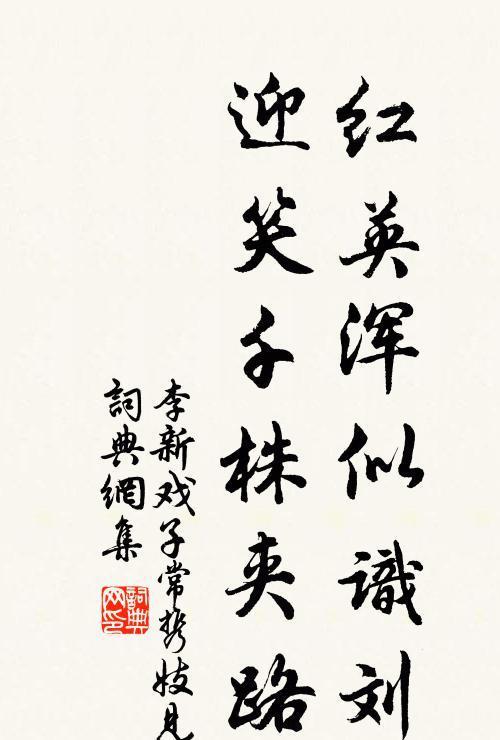 红英浑似識刘
迎笑千株夹路
李新戏子常携妓見
詞典網集
詞典网印